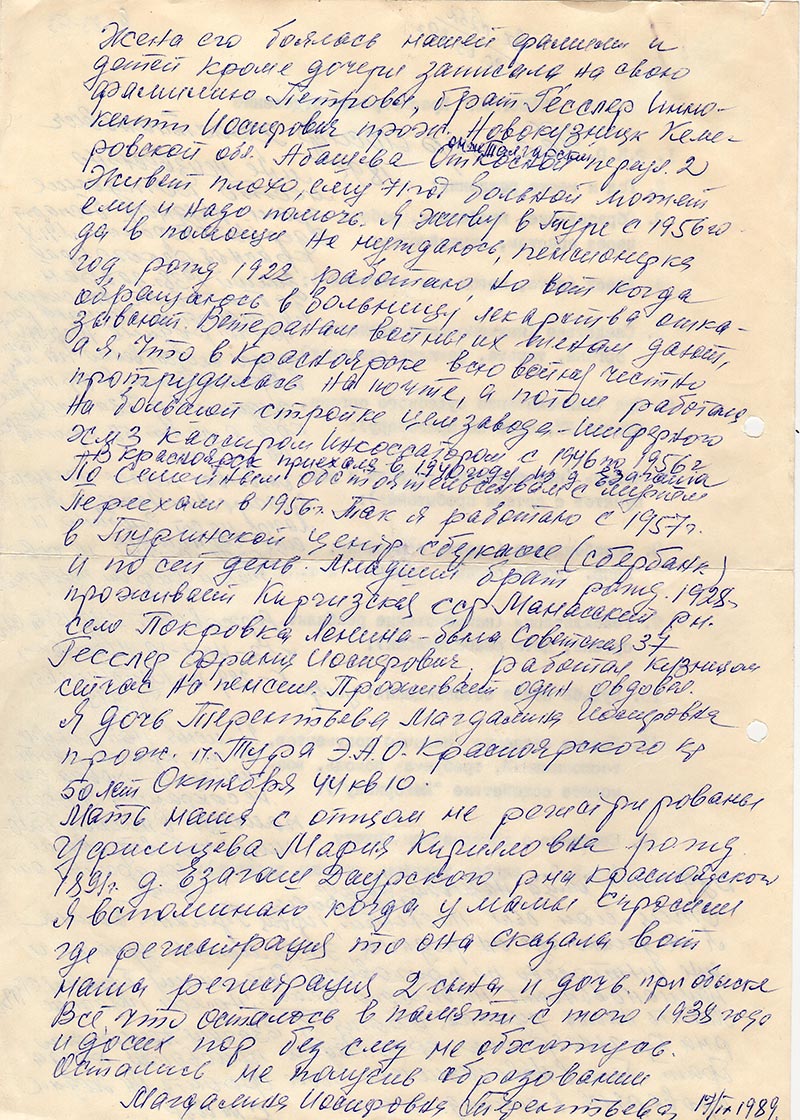 Жена его боялась нашей фамилии и
детей кроме дочери записала на свою
фамилию Петровы, брат Гесслер Инно-
кентий Иосифович прож. Новокузницк Кеме-
ровской обл. Абашева Откосной переул. 2
Живет плохо, ему 71 год больной может
ему и надо помочь. Я живу в Туре с 1956 го-
да в помощи не нуждаюсь, пенсионерка
год рожд 1922 работаю но вот когда
обращаюсь в больницу, лекарства отка-
зывают. Ветеранам войны их женам дают,
а я. Что в Красноярске всю войну честно
протрудилась на почте, а потом работала
на большой стройке цемзавода-Шиферного
ХМЗ Кассиром Инкоссатором с 1946 по 1956 г
В Красноярск приехала в 1940 году из д. Езагаша
По Семейным обстоятельствам с мужем
переехали в 1956 г. Так я работаю с 1957 г.
в Туринской центр сберкассе (сбербанк)
и по сей день. Младший брат рожд. 1928
проживает Киргизская сср Манасский рн.
село Покровка Ленина-была Советская 37
Гесслер Франц Иосифович. работал Кузнецом
сейчас на пенсии. Проживает один овдовел.
Я дочь Терентьева Магдалина Иосифовна
прож. п. Тура Э.А.О. Красноярского кр
50 лет Октября 44 кв 10.
Мать наша с отцом не регистрированы
Мария Кирилловна рожд.
1891 г. д. Езагаш Даурского рна Красноярского
Я вспоминаю когда у мамы спросили
где регистрация то она сказала вот
наша регистрация 2 сына и дочь. при обыске
Всё что осталось в памяти с того 1938 года
и до сих пор без слез не обхожусь.
Остались не получив образовании
Магдалина Иосифовна Терентьева 17/IX 1989.